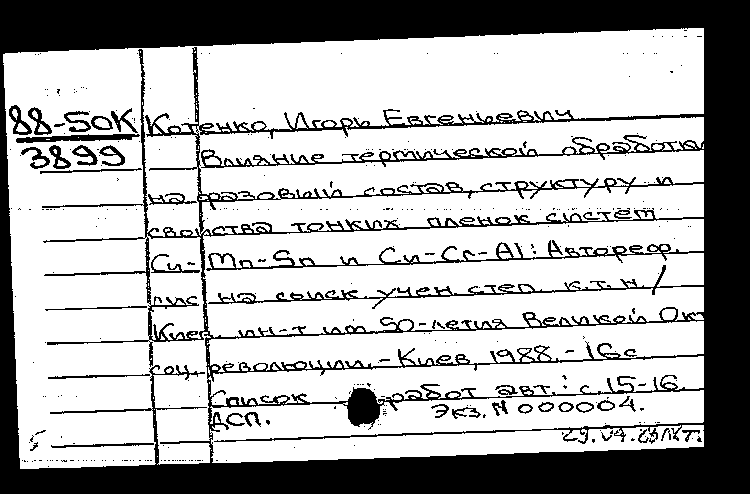 88-50К Котенко, Игорь Евгеньевич
3899 Влияние термической обработки
на фазовый состав, структуру и
свойства тонких пленок систем
Cu-Mn-Sn и Cu-Cr-Al: Автореф.
дис на соиск. учен степ. к.т.н. /
Киев. ин-т им 50-летия Великой Окт
соц. революции. - Киев, 1988. - 16 с
Список работ авт.: с. 15-16.
ДСП. Экз. N 000004.